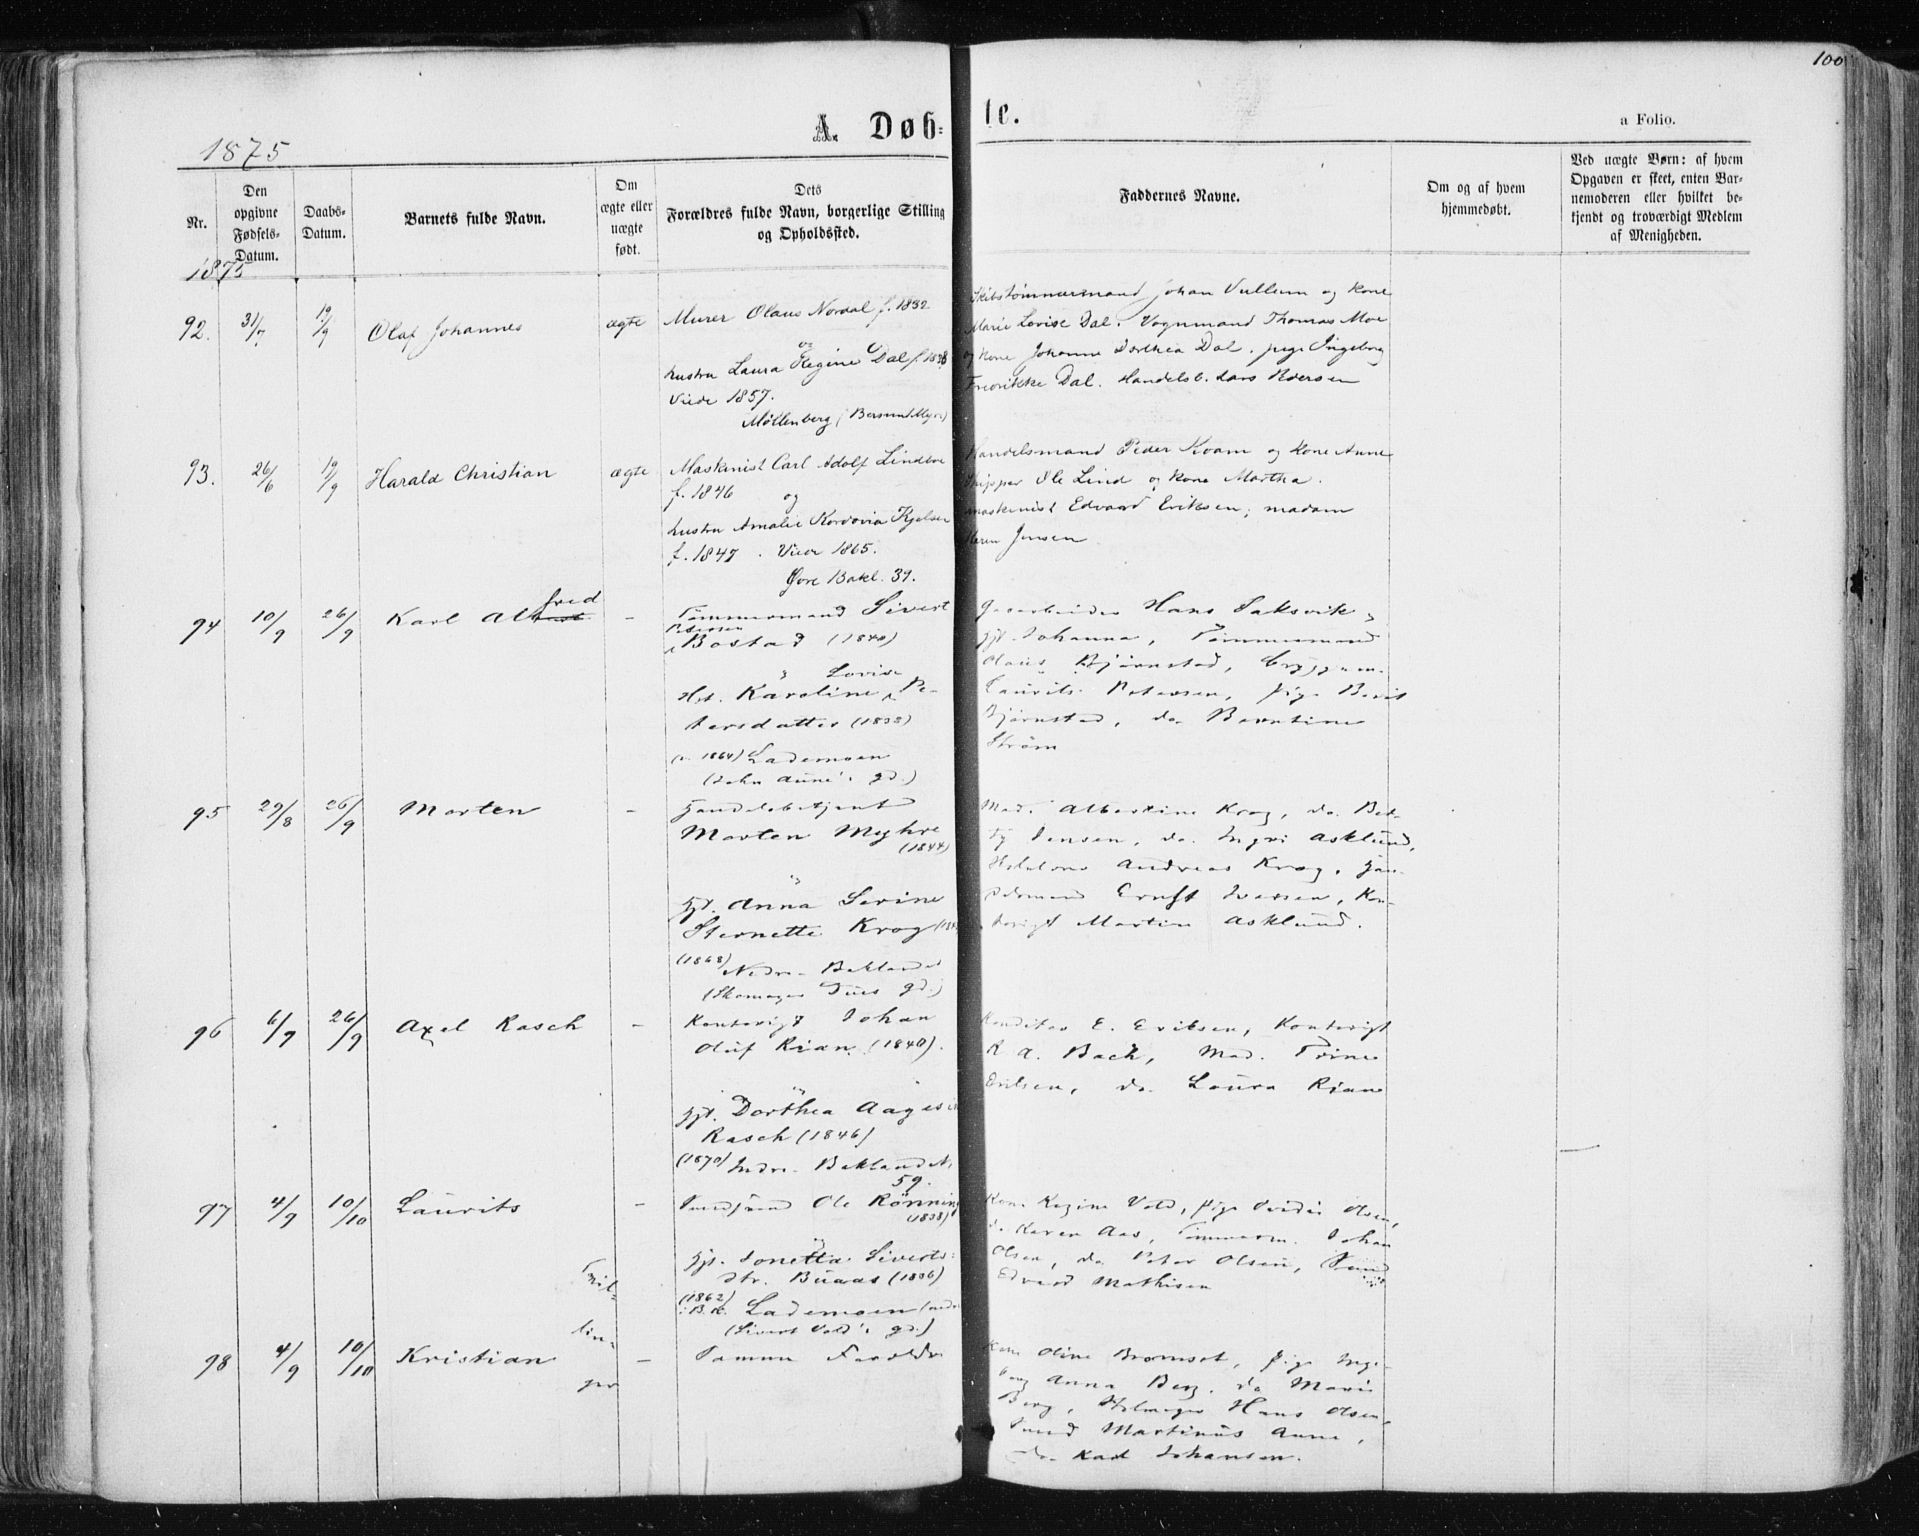 100
A. Døb-
te.
a Folio.
1875
Nr.
Den opgivne Fødsels-Datum.
Daabs-Datum.
Barnets fulde Navn.
Om ægte eller uægte født.
Dets Forældres fulde Navn, borgerlige Stilling og Opholdssted.
Faddernes Navne.
Om og af hvem hjemmedøbt.
Ved uægte Børn: af hvem Opgaven er skeet, enten Barnemoderen eller hvilket bekjendt og troværdigt Medlem af Menigheden.
1875
92. 31/7 19/9 Olaf Johannes ægte
Murer Olaus Nordal f. 1832
og
hustru Laura Regine Dal f. 1838
Viede 1857.
Møllenberg (Bersvend Myrs)
Skibstømmermand Johan Vullum og Kone
Marie Lovise Dal. Vognmand Thomas Moe
og Kone Johanne Dorthea Dal. pige Ingeborg
Fredrikke Dal. Handelsb. Lars Iversen
93. 26/6 19/9 Harald Christian ægte
Maskinist Carl Adolf Lindboe
f. 1846 og
hustru Amalie Kordovia Kjelsen
f. 1847. Viede 1865.
Øvre Bakl. 39.
Handelsmand Peder Kvam og Kone Anne
Skipper Ole Lind og Kone Martha.
maskinist Edvard Eriksen, madam
Karen Jensen
94 10/9 26/9 Karl Alfred -
Tømmermand Sivert
Petersen
Bostad (1840)
Lovise
Hst. Karoline Pe-
tersdatter (1838)
(v. 1864) Lademoen
(John Aune's gd.)
Hans Saksvik
Hst. Johanna, Tømmermand
Olaus Bjørnstad, Bryggem.
Laurits Petersen, Pige Berit
Bjørnstad, do Berntine
Strøm
95 29/8 26/9 Morten -
Handelsbetjent
Morten Meyhre
(1844)
Hst. Anna Serine
Sternette Krog
(1868) Nedre Baklandet
(Skomager Tues gd.)
Mad. Albertine Krog, do. Bet-
ty Jensen, do. Ingri Asklund,
Andreas Krog, Han-
delsmand Ernst Iversen, Kon-
torist Martin Asklund.
96 6/9 26/9 Axel Rasch -
Kontorist Johan
Oluf Rian (1840).
Hst. Dorthea Aagesen
Rasch (1846)
(1870) Indre Bakland N.
59.
Konditor E. Eriksen, Kontorist
R A. Bach, Mad. Trine
Eriksen, do. Laura Rian
97 4/9 10/10 Laurits -
Ole Rønning
(1838)
Hst. Jonetta Siverts-
dtr. Buaas (1836)
(1862)
i B.K. Lademoen (nedre
(Sivert Vold's gd.)
Kone Regine Vold, Pige Olsen,
do Karen Aas, Tømmerm. Johan
Olsen, do Peter Olsen,
Edvard Mathisen
Tvil-
lin-
ger
98 4/9 10/10 Kristian -
Samme Forældre
Kone Oline Bromset, Pige Inge-
borg Anna Berg. do Marie
Berg, Hans Olsen,
Martinus Aune,
do Karl Johansen.